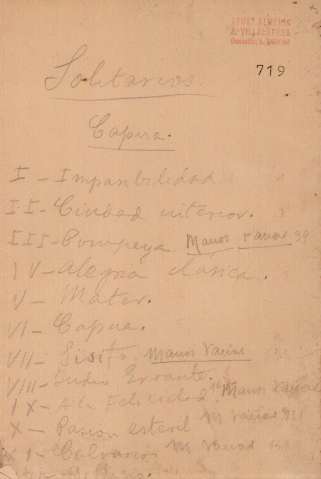 719
Solitarios
Capua.
I - Impasibilidad
II - Ciudad interior.
III - Pompeya Manos Vacías
IV - Alegría clásica.
V - Mater.
VI - Capua.
VII - Sísifo. Manos Vacías
VIII - Judío Errante.
IX - A la Felicidad Manos Vacías
X - Pasión estéril M Vacías
XI - Calvarios M Vacías